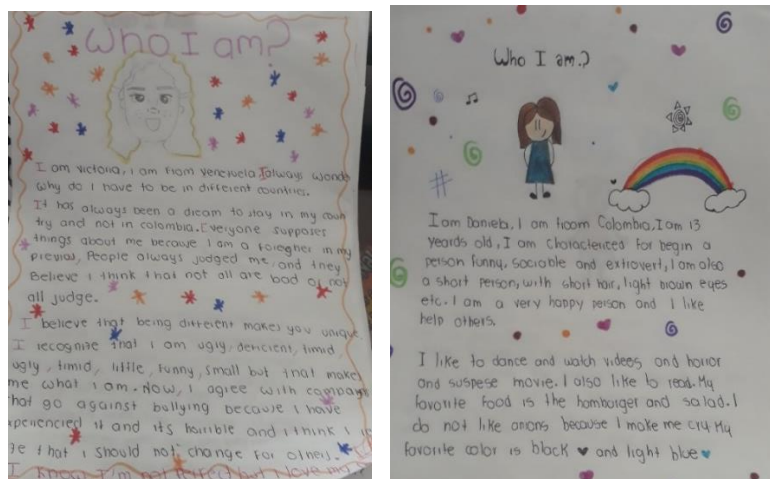 Who I am?
I am victoria, i am from venezuela I always wonde
why do I have to be in different countries.
It has always been a dream to stay in my coun
try and not in colombia. Everyone supposes
things about me because I am a foregher in my
previal, People always judged me, and they
Believe i think that not all are bad or not
all judge.
I believe that being different makes you unique
I recognize that I am ugly, deficient, timid
ugly, timid, little, funny, small but that makes
me what I am. Now, I agree with campaya
hat go against bullying because I have
xperiencied it and its horrible and i think i
ge that i should not change for others.
I know I'm not perfect but I love
Who I am?
I am Daniela, I am froom Colombia, I am 13
yeards old, I am charactericed for begin a
person funny, sociable and extrovert, I am also
a short person, with short hair, light brown eyes
etc. I am a very happy person and I like
help others.
I like to dance and watch videos and horror
and suspese movie. I also like to read. My
favorite food is the hamborger and salad. I
do not like onions because I make me cry. My
favorite color is black and light blue